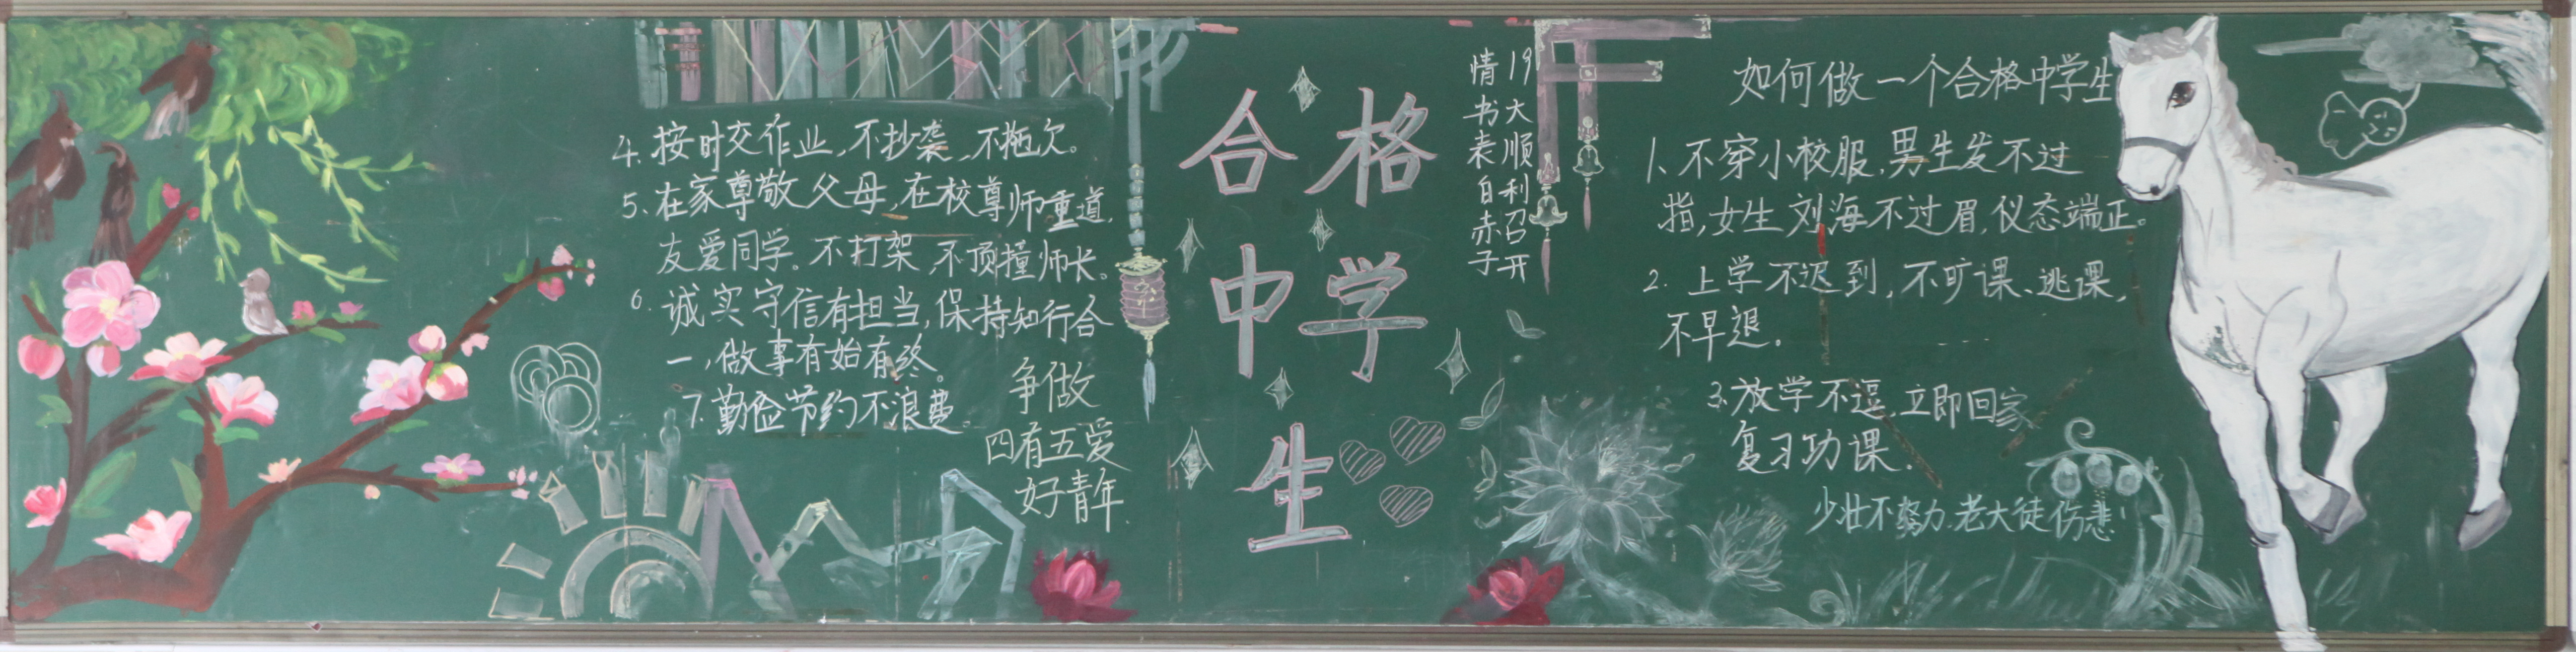 合格
中学
生
19大顺利召开
情书表白赤子
如何做一个合格中学生
1、不穿小校服,男生发不过
指,女生刘海不过眉,仪态端正。
2. 上学不迟到,不旷课、逃课,
不早退。
3.放学不逗,立即回家
复习功课.
少壮不努力.老大徒伤悲!
4.按时交作业,不抄袭,不拖欠。
5、在家尊敬父母,在校尊师重道,
友爱同学。不打架,不顶撞师长。
6.诚实守信有担当,保持知行合
一,做事有始有终。
7.勤俭节约不浪费。
争做
四有五爱
好青年.